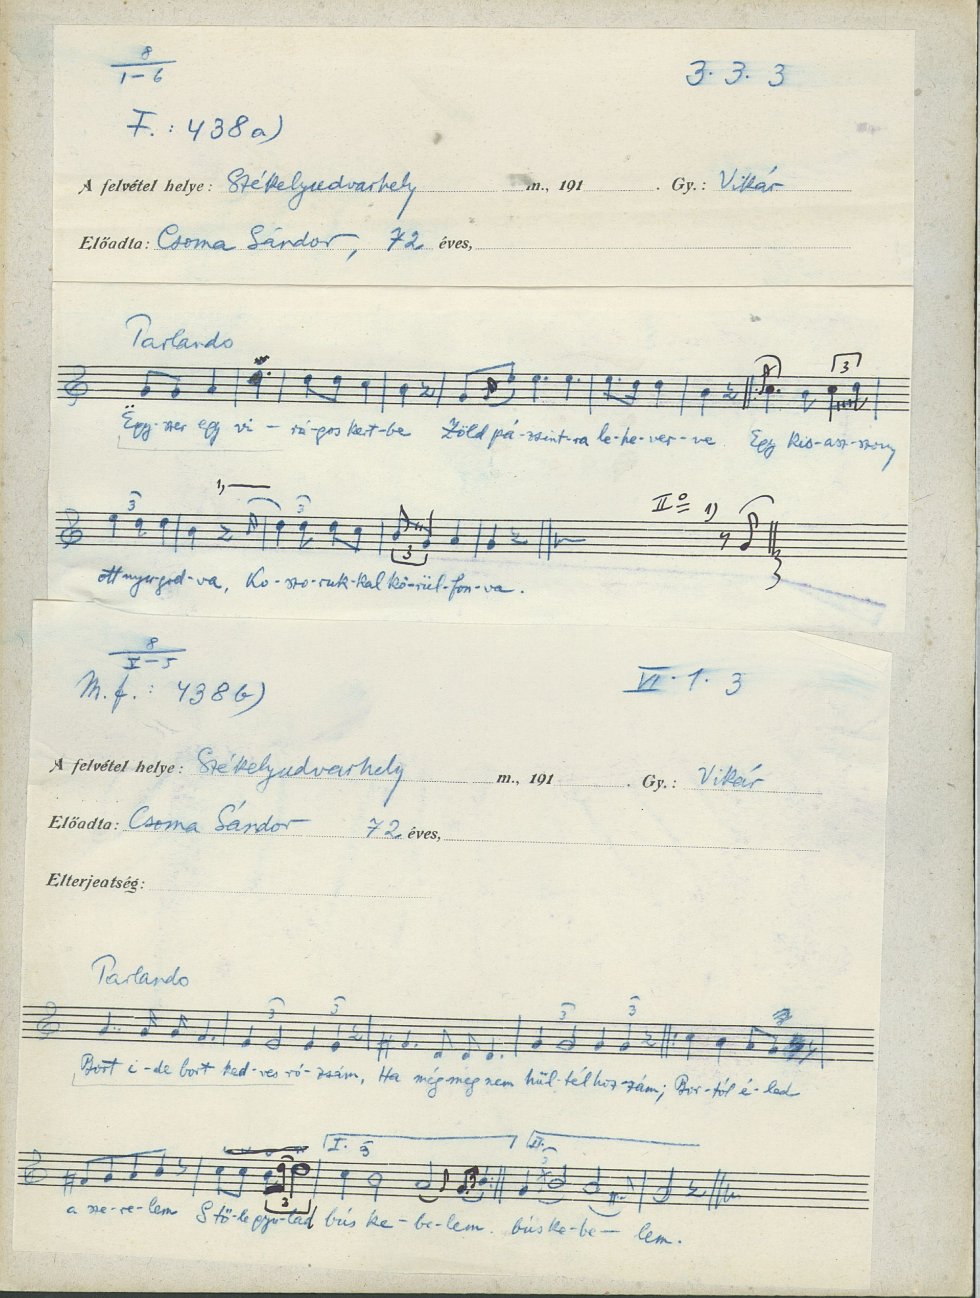 8
1-6
3. 3. 3
F.: 438a)
A felvétel helye: Székelyudvarhely m., 191 . Gy.: Vikár
Előadta: Csoma Sándor, 72 éves,
Parlando
3
Egy-szer egy vi - rá-gos kert-be Zöld pá-zsint-ra le-he-ver--ve Egy kis-asz-szony
1) II° 1)
3 3
3
ott nyu-god-va, Ko-szo-ruk-kal kö-rül-fon-va.
8
X-5
VI. 1. 3
M.f.: 438b)
A felvétel helye: Székelyudvarhely m., 191 . Gy.: Vikár
Előadta: Csoma Sándor 72 éves,
Elterjeatség:
Parlando
3 3 3 3
Bort i-de bort ked-ves ró-zsám, Ha még meg nem hül-tél hoz-zám; Bor-tól é-led
I. 3 II. 3
3
a sze-re-lem S tő-le gyu-lad bús ke-be-lem. bús ke-be- lem.